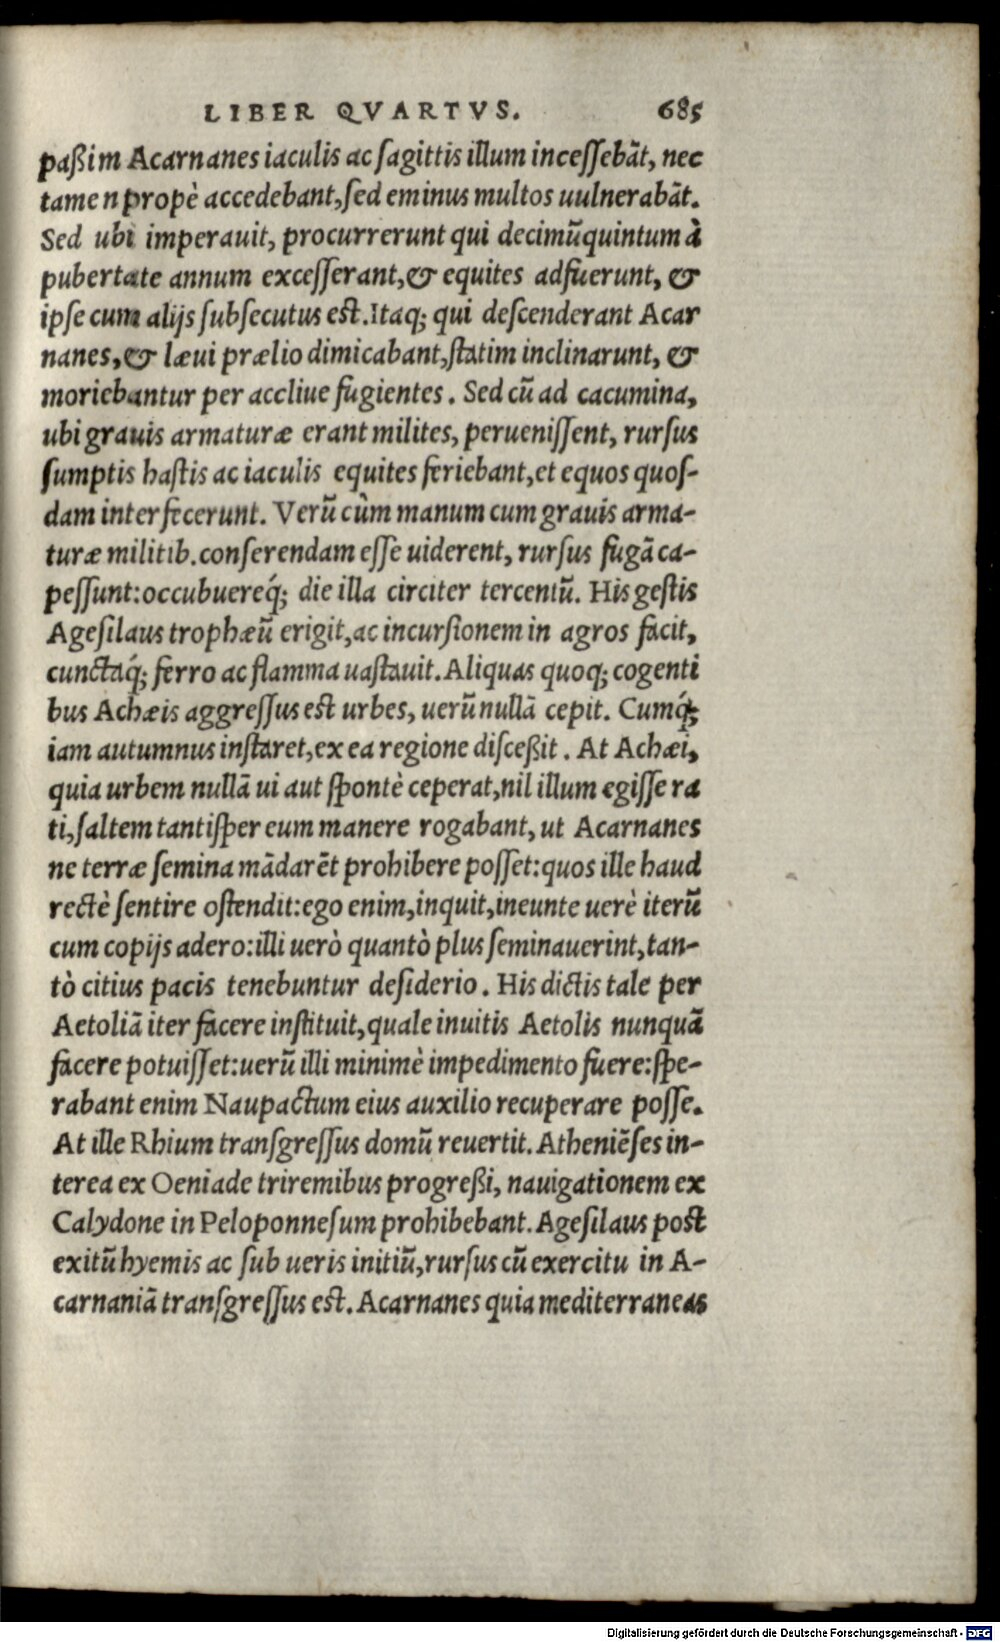 LIBER QVARTVS. 685
paßim Acarnanes iaculis ac ſagittis illum inceſſebãt, nec
tamen propè accedebant, ſed eminus multos uulnerabãt.
Sed ubi imperauit, procurrerunt qui decimũquintum à
pubertate annum exceſſerant, & equites adfuerunt, &
ipſe cum alijs ſubſecutus est. Itaq; qui deſcenderant Acar
nanes, & læui prælio dimicabant, ſtatim inclinarunt, &
moriebantur per accliue fugientes. Sed cũ ad cacumina,
ubi grauis armaturæ erant milites, perueniſſent, rurſus
ſumptis haſtis ac iaculis equites feriebant, et equos quoſ-
dam interfecerunt. Verũ cùm manum cum grauis arma-
turæ militib. conſerendam eſſe uiderent, rurſus fugã ca-
peſſunt: occubuereq́; die illa circiter tercentũ. His geſtis
Ageſilaus trophæũ erigit, ac incurſionem in agros facit,
cunctaq́; ferro ac flamma uaſtauit. Aliquas quoq; cogenti
bus Achæis aggreſſus est urbes, uerũ nullã cepit. Cumq́;
iam autumnus inſtaret, ex ea regione diſceßit. At Achæi,
quia urbem nullã ui aut ſpontè ceperat, nil illum egiſſe ra
ti, ſaltem tantiſper eum manere rogabant, ut Acarnanes
ne terræ ſemina mãdarẽt prohibere poſſet: quos ille haud
rectè ſentire oſtendit: ego enim, inquit, ineunte uerè iterũ
cum copijs adero: illi uerò quantò plus ſeminauerint, tan-
tò citius pacis tenebuntur deſiderio. His dictis tale per
Aetoliã iter facere inſtituit, quale inuitis Aetolis nunquã
facere potuiſſet: uerũ illi minimè impedimento fuere: ſpe-
rabant enim Naupactum eius auxilio recuperare poſſe.
At ille Rhium tranſgreſſus domũ reuertit. Atheniẽſes in-
terea ex Oeniade triremibus progreßi, nauigationem ex
Calydone in Peloponneſum prohibebant. Ageſilaus poſt
exitũ hyemis ac ſub ueris initiũ, rurſus cũ exercitu in A-
carnaniã tranſgreſſus est. Acarnanes quia mediterraneas
Digitalisierung gefördert durch die Deutsche Forschungsgemeinschaft - DFG